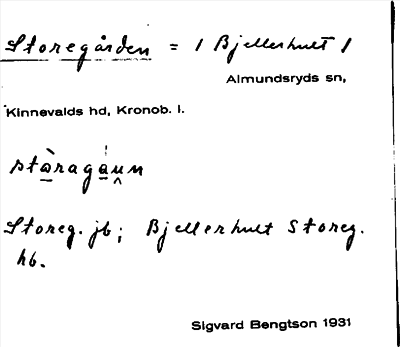 Storegården = / Bjellerhult /
Almundsryds sn,
Kinnevalds hd, Kronob. l.
Storeg. jb; Bjellerhult Storeg.
hb.
Sigvard Bengtson 1931